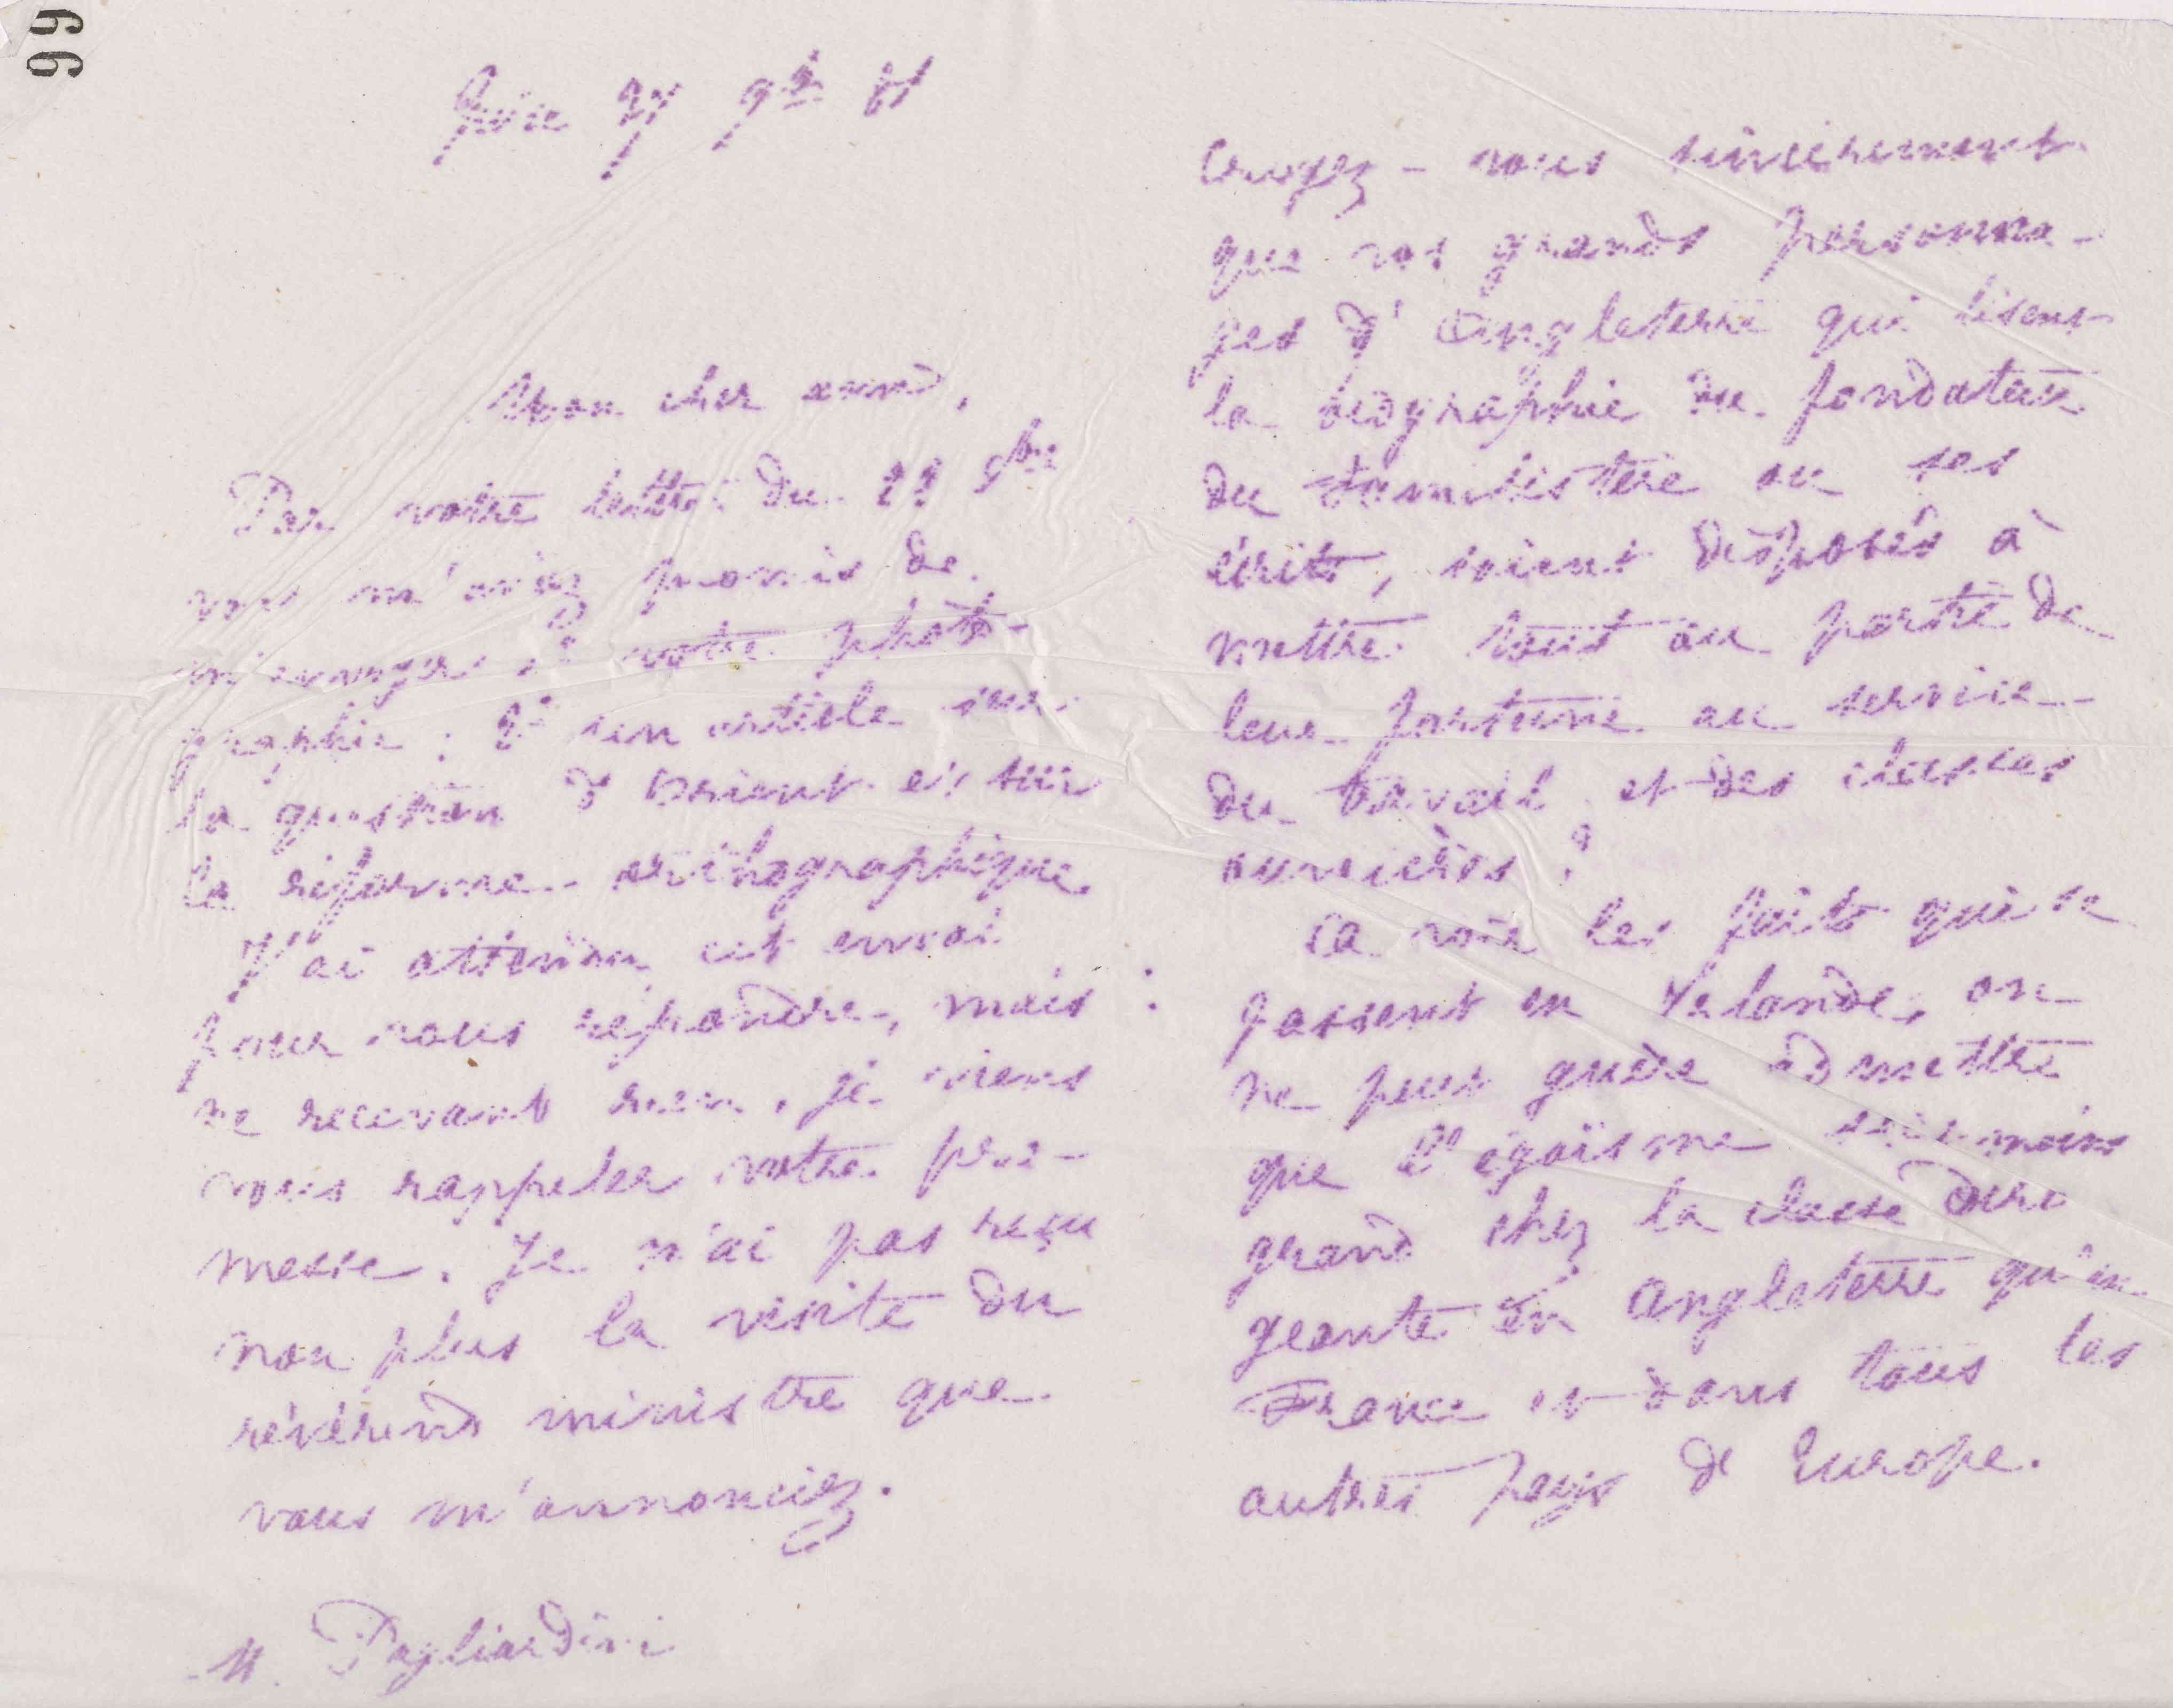 99
Guise 27 9bre 81
Mon cher ami,
Par votre lettre du 11 9bre
vous m'aviez promis de
m'envoyer 1° votre photo-
graphie : 2° un article sur
la question d'Orient et sur
la réforme orthographique.
J'ai attendu cet envoi
pour vous répondre, mais
ne recevant rien, je viens
vous rappeler votre pro-
messe. Je n'ai pas reçu
non plus la visite du
révérend ministre que
vous m'annonciez.
M. Pagliardini
Croyez-vous sincèrement
que vos grands personna-
ges d'Angleterre qui lisent
la biographie du fondateur
du Familistère ou ses
écrits, soient disposés à
mettre tout ou partie de
leur fortune au service
du travail et des classes
ouvrières ?
À voir les faits qui se
passent en Irlande, on
ne peut guère admettre
que l'égoïsme soit moins
grand chez la classe diri
geante en Angleterre qu'en
France et dans tous les
autres pays de Europe.